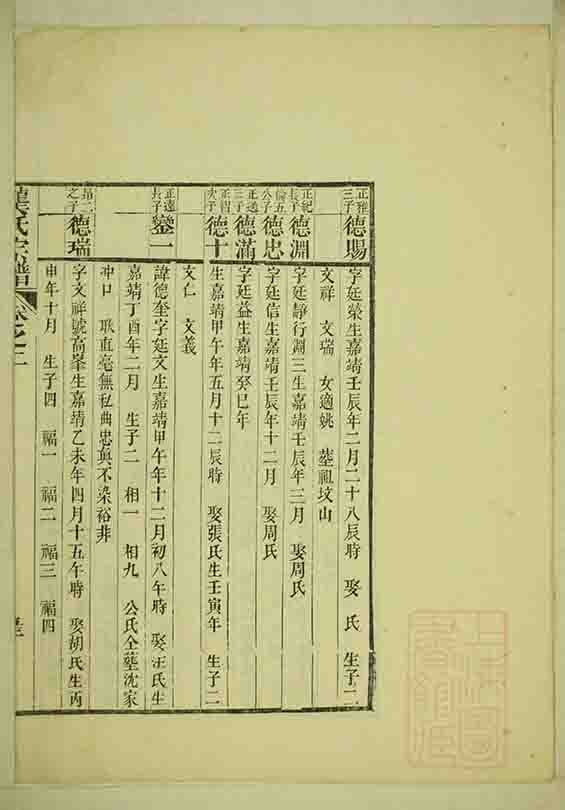 正雅三子 德賜 字廷榮生嘉靖壬辰年二月二十八辰時 娶 氏 生子二
文祥 文瑞 女適姚 塟祖坟山
正紀長子 德淵 字廷靜行淵三生嘉靖壬辰年三月 娶周氏
倫五公子 德忠 字廷信生嘉靖壬辰年十二月 娶周氏
正通三子 德滿 字廷益生嘉靖癸巳年
次子 德十 生嘉靖甲午年五月十二辰時 娶張氏生壬寅年 生子二
文仁 文義
正遠長子 鑾一 諱德奎字廷文生嘉靖甲午年十二月初八午時 娶汪氏生
嘉靖丁酉年二月 生子二 相一 相九 公氏仝塟沈家
冲口 耿直毫無私曲忠與不染裕非
昂二之子 德瑞 字文祥號高峯生嘉靖乙未年四月十五午時 娶胡氏生丙
申年十月 生子四 福一 福二 福三 福四
氏宗譜 卷之二